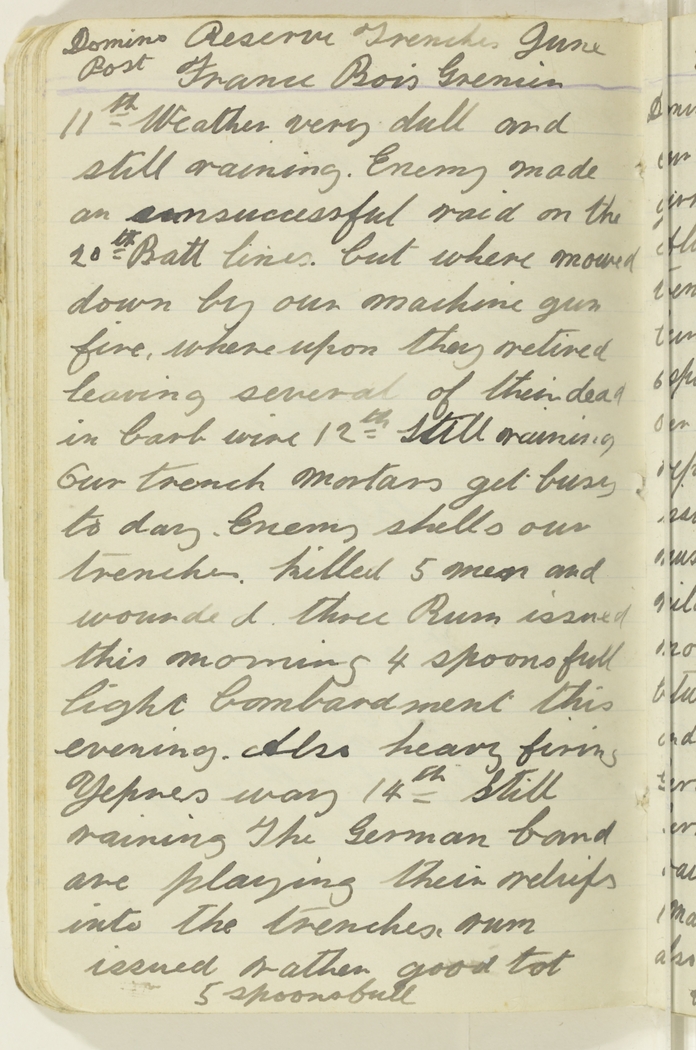 Domino Reserve Trenches June
Post France Bois Grenier
11th Weather very dull and
still raining. Enemy made
an unsuccessful raid on the
20th Batt lines. but where mowed
down by our machine gun
fire, where upon they retired
leaving several of their dead
in barb wire 12th Still raining
Our trench mortars get busy
to day. Enemy shells our
trenches. killed 5 men and
wounded. three Rum issued
this morning 4 spoonsfull
light bombardment this
evening. Also heavy firing
Yepres way 14th Still
raining The German band
are playing their reliefs
into the trenches. rum
issued rather good tot
5 spoonsfull